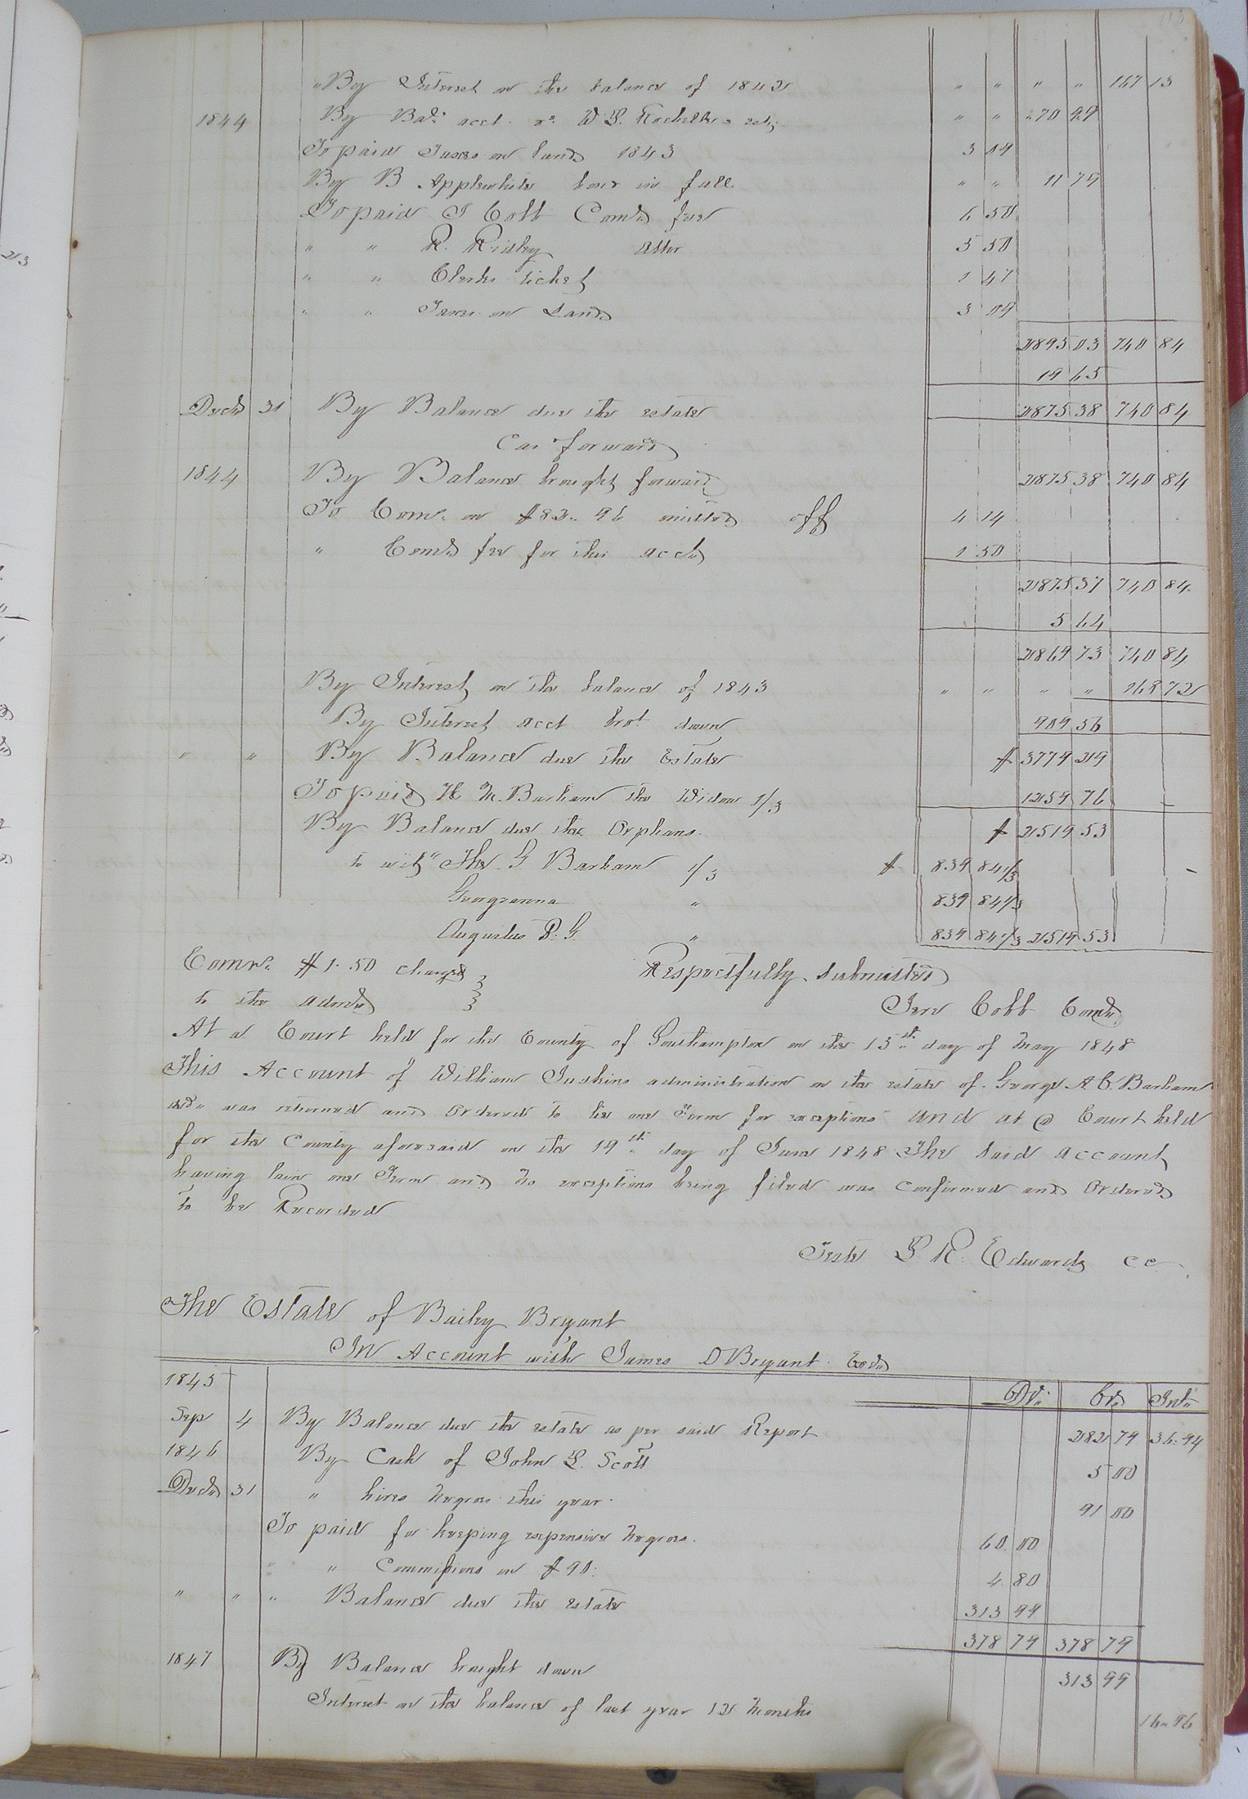 " By Interest on the balance of 1842 " " " " 167 13
1844 By Bal: acct. " " 270 99
To paid Taxes on land 1843 3 09
By B Applewhite bond in full " " 11 79
To paid J Cobb Com's fee 6 50
" " R. Ridley Attor 5 50
" " Clerks ticket 1 47
" " Taxes on Land 3 09
2895 03 740 84
19 65
Decr 31 By Balance due the estate 2875 38 740 84
Car forward
1844 By Balance brought forward 2875 38 740 84
To Com. on $82.96 omitted off 4 14
" Comr fee for this acct 1 50
2875 37 740 84
5 64
2869 73 740 84
By Interest on the balance of 1843 " " " " 168 72
By Interest acct brot down 909 56
" " By Balance due the Estate $ 3779 29
To paid H M. Barham the Widow 1/3 1259 76
By Balance due the Orphans. $ 2519 53
to wit" Tho. G Barham 1/3 $ 839 84 1/3
Georgeanna " 839 84 1/3
Augustus P. G. " 839 84 1/3 2519 53
Comr. $1.50 charged Respectfully Submitted
to the admr Jere Cobb Comr
At a Court held for the County of Southampton on the 15th day of May 1848
This Account of William administration on the estate of George A C Barham
decd. was returned and Ordered to lie one Term for exceptions and at a Court held
for the County aforesaid on the 19th day of June 1848 The Said account
having lain one Term and no exceptions being filed was confirmed and Ordered
to be Recorded
Teste L R Edwards CC
The Estate of Bailey Bryant
In Account with James D Bryant Exor
1845 Dr: Cr. Int.
Sep 4 By Balance due the estate as per said Report 282 79 36.94
1846 By Cash of John L. Scott 5 00
Decr 31 " hires negroes this year. 91 00
To paid for keeping expensive negroes. 60 00
" " Commissions on $90: 4 80
" " " Balance due the estate 313 99
378 79 378 79
1847 By Balance brought down 313 99
Interest on the balance of last year 12 Months 16.96